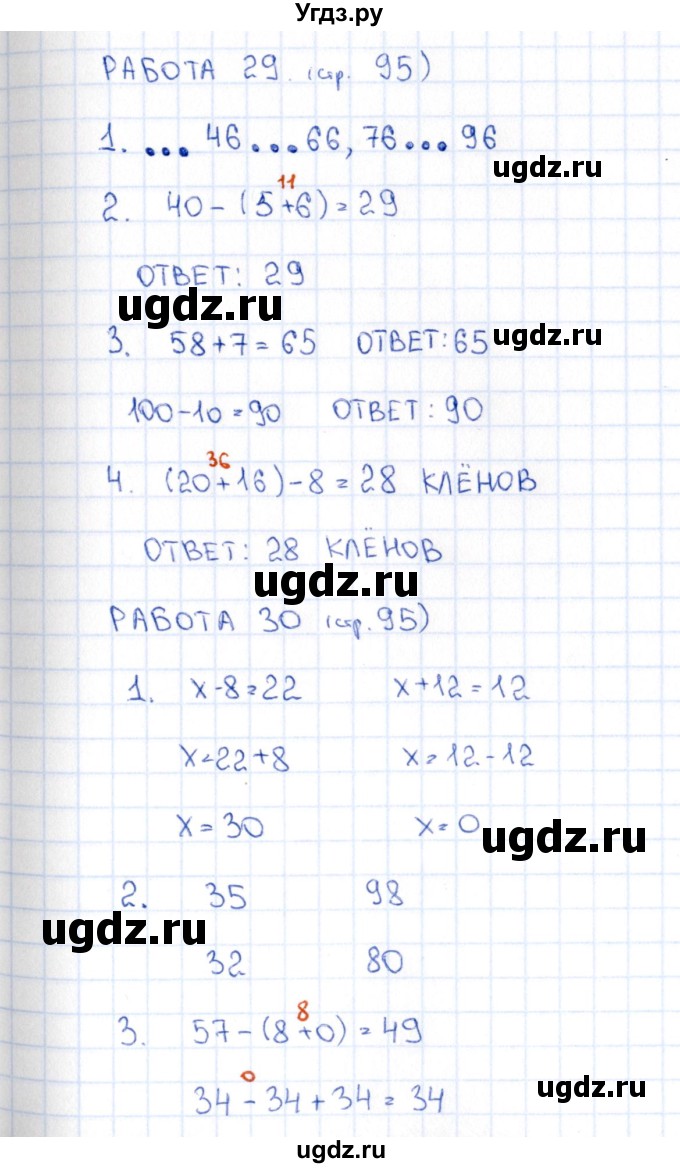 Угдз.ру
РАБОТА 29 (стр. 95)
1. ... 46 ... 66, 76 ... 96
ugdz.ru
11
2. 40 - (5+6) = 29
ОТВЕТ: 29
ugdz.ru
3. 58+7 = 65 ОТВЕТ: 65
ugdz.ru
100-10 = 90 ОТВЕТ: 90
36
4. (20+16)-8 = 28 КЛЁНОВ
ОТВЕТ: 28 КЛЁНОВ
ugdz.ru
РАБОТА 30 (стр. 95)
1. x-8=22 x+12=12
x=22+8 x=12-12
x=30 x=0
ugdz.ru
2. 35 98
ugdz.ru
32 80
8
3. 57-(8+0) = 49
0
34-34+34 = 34
ugdz.ru
ugdz.ru